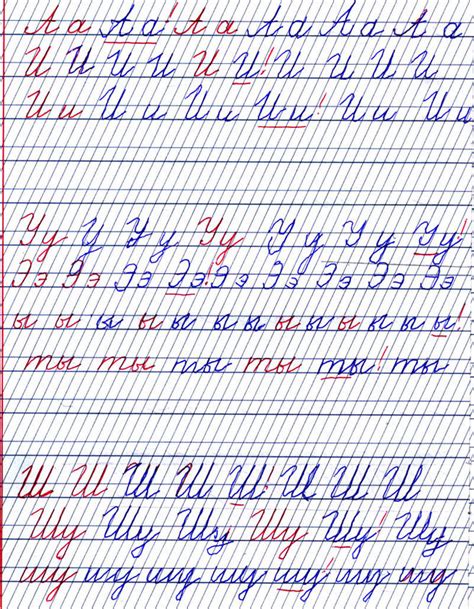 А а А а! А а А а А а А а
И И И И И И! И И И И И
И и И и И и И и! И и И и
У у У У у У у У у У у У у!
Э э Э э Э э Э э! Э э Э э Э э Э э Э э
ы ы ы ы ы ы ы ы ы ы ы ы ы ы!
ты ты ты ты ты! ты
Ш Ш Ш Ш Ш! Ш Ш Ш Ш
Шу Шу Шу! Шу Шу! Шу
шу шу шу шу шу! шу шу